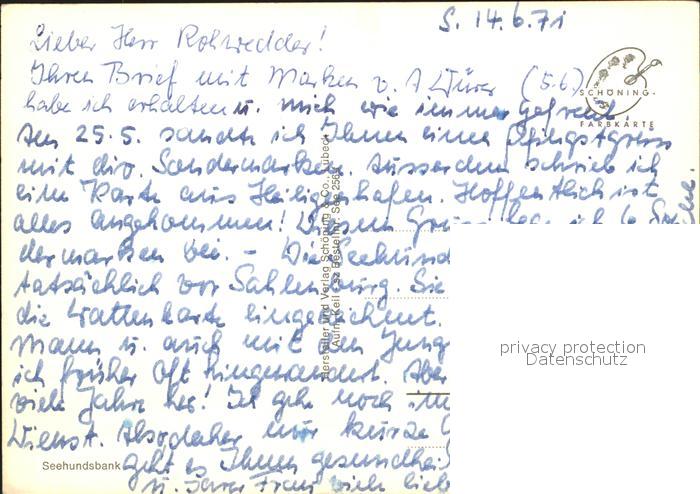 S. 14.6.71
Lieber Herr Rohwedder!
Ihren Brief mit Marken v. (5.6)
habe ich erhalten u. mich wie immer gefreut.
SCHÖNING-
FARBKARTE
Am 25.5. sandte ich Ihnen einen Pfingstgruss
mit div. Sondermarken. Ausserdem schrieb ich
eine Karte aus Heiligenhafen. Hoffentlich ist
alles angekommen! Diesem ich 6 Son
dermarken bei. – Die Seehund
tatsächlich vor Sahlenburg. Sie
die Wattenkarte eingezeichnet.
Mann u. auch mit den Jung
ich früher oft hingewandert. Aber
viele Jahre her! Ich gehe noch im
Dienst. Also daher nur kurze
geht es Ihnen gesundheit
u. Ihrer Frau viele lieb
Seehundsbank
Hersteller und Verlag Schöning & Co., Lübeck
privacy protection
Datenschutz